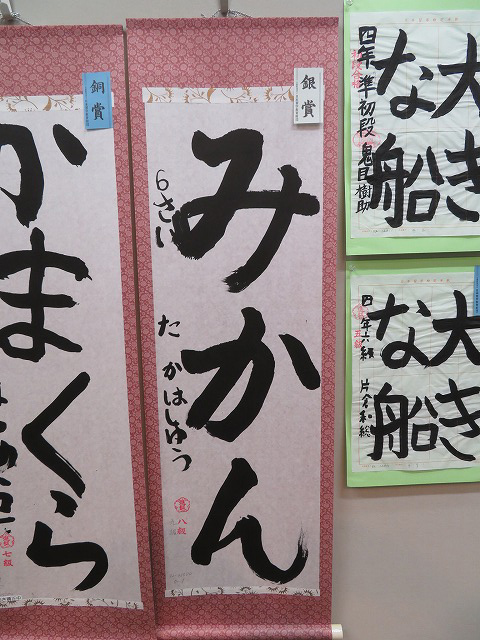 銅賞
かまくら
七級
銀賞
みかん
6さい
たかはしゆう
八級
大きな船
四年 準初段 鬼目樹助
大きな船
四年 六級 片倉和総